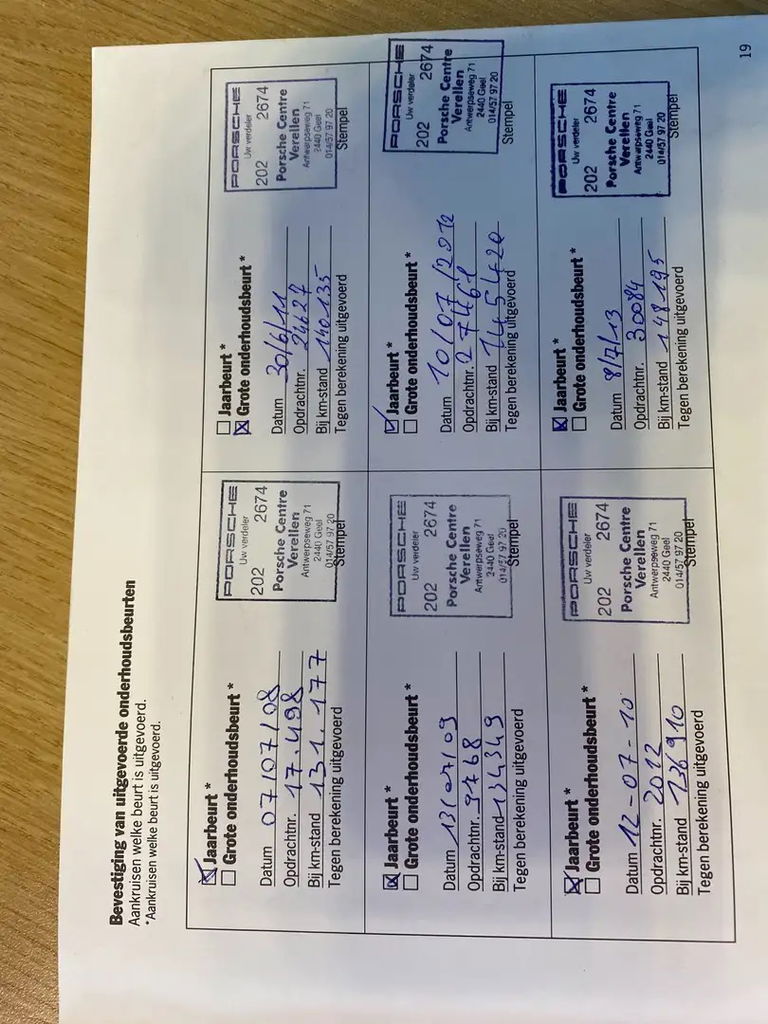 Bevestiging van uitgevoerde onderhoudsbeurten
Aankruisen welke beurt is uitgevoerd.
*Aankruisen welke beurt is uitgevoerd.
Jaarbeurt *
Grote onderhoudsbeurt *
Datum 07/07/08
Opdrachtnr. 17.498
Bij km-stand 131.177
Tegen berekening uitgevoerd
PORSCHE
Uw verdeler
202 2674
Porsche Centre
Verellen
Antwerpseweg 71
2440 Geel
014/57 97 20
Stempel
Jaarbeurt *
Grote onderhoudsbeurt *
Datum 13/07/09
Opdrachtnr. 9468
Bij km-stand 134349
Tegen berekening uitgevoerd
PORSCHE
Uw verdeler
202 2674
Porsche Centre
Verellen
Antwerpseweg 71
2440 Geel
014/57 97 20
Stempel
Jaarbeurt *
Grote onderhoudsbeurt *
Datum 12-07-10
Opdrachtnr. 2012
Bij km-stand 136910
Tegen berekening uitgevoerd
PORSCHE
Uw verdeler
202 2674
Porsche Centre
Verellen
Antwerpseweg 71
2440 Geel
014/57 97 20
Stempel
Jaarbeurt *
Grote onderhoudsbeurt *
Datum 30/6/11
Opdrachtnr. 24627
Bij km-stand 140135
Tegen berekening uitgevoerd
PORSCHE
Uw verdeler
202 2674
Porsche Centre
Verellen
Antwerpseweg 71
2440 Geel
014/57 97 20
Stempel
Jaarbeurt *
Grote onderhoudsbeurt *
Datum 10/07/2012
Opdrachtnr. 27461
Bij km-stand 145420
Tegen berekening uitgevoerd
PORSCHE
Uw verdeler
202 2674
Porsche Centre
Verellen
Antwerpseweg 71
2440 Geel
014/57 97 20
Stempel
Jaarbeurt *
Grote onderhoudsbeurt *
Datum 8/7/13
Opdrachtnr. 30084
Bij km-stand 148195
Tegen berekening uitgevoerd
PORSCHE
Uw verdeler
202 2674
Porsche Centre
Verellen
Antwerpseweg 71
2440 Geel
014/57 97 20
Stempel
19